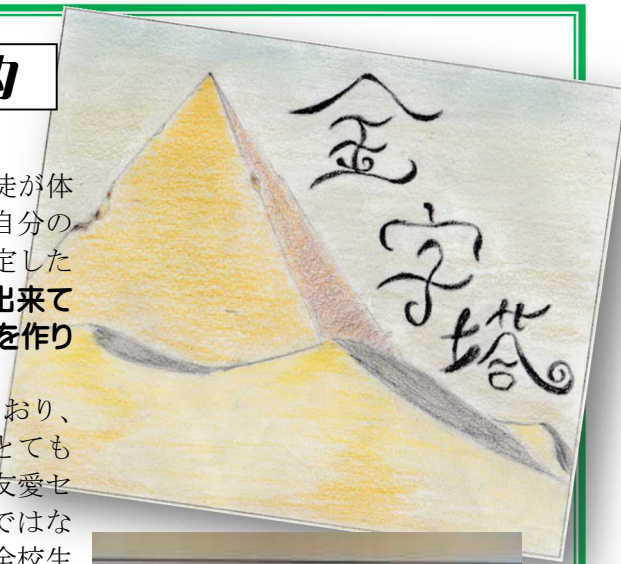 徒が体
自分の
定した
出来て
を作り
おり、
とても
友愛セ
ではな
全校生
金字塔